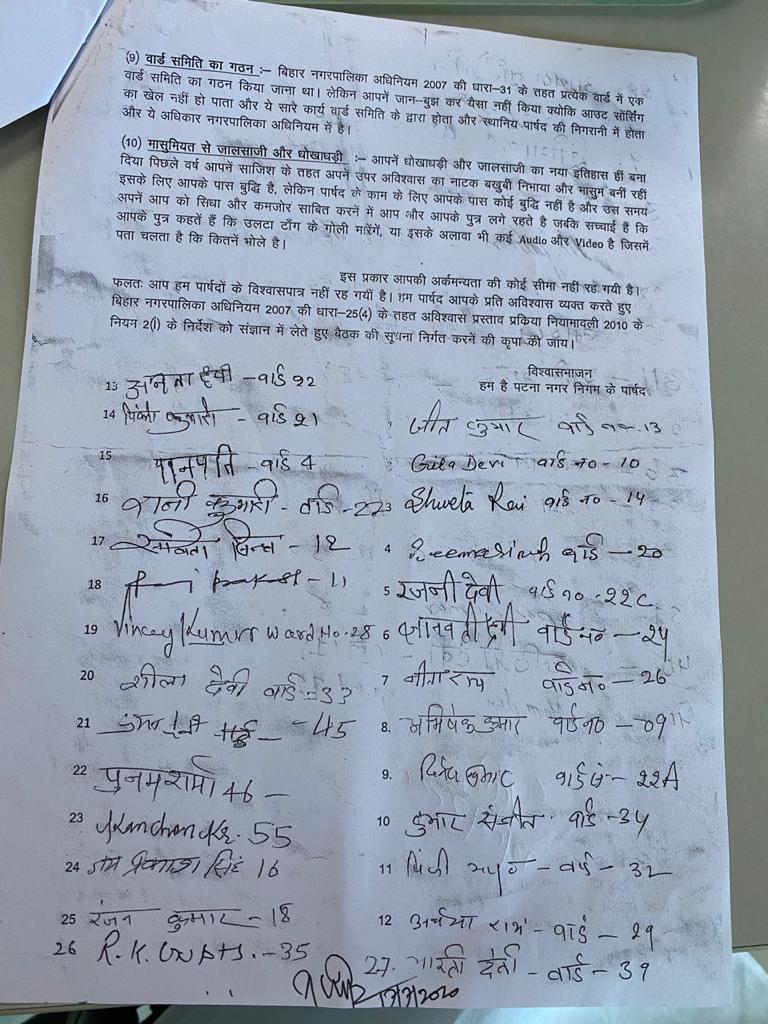 (9) वार्ड समिति का गठन :– बिहार नगरपालिका अधिनियम 2007 की धारा–31 के तहत प्रत्येक वार्ड में एक
वार्ड समिति का गठन किया जाना था। लेकिन आपनें जान–बुझ कर यैसा नहीं किया क्योकि आउट सोंर्सिंग
का खेल नहीं हो पाता और ये सारे कार्य वार्ड समिति के द्वारा होता और स्थानिय पार्षद की निगरानी में होता
और ये अधिकार नगरपालिका अधिनियम में है।
(10) मासुमियत से जालसाजी और धोखाधड़ी :– आपनें धोखाधड़ी और जालसाजी का नया इतिहास हीं बना
दिया पिछले वर्ष आपनें साजिश के तहत अपनें उपर अविश्वास का नाटक बखुबी निभाया और मासुम बनीं रहीं
इसके लिए आपके पास बुद्धि है, लेकिन पार्षद के काम के लिए आपके पास कोई बुद्धि नहीं है और उस समय
अपनें आप को सिधा और कमजोर साबित करनें में आप और आपके पुत्र लगे रहते है जबकि सच्चाई हैं कि
आपके पुत्र कहतें हैं कि उलटा टाँग के गोली मारेंगें, या इसके अलावा भी कई Audio और Video है जिसमें
पता चलता है कि कितनें भोले है।
इस प्रकार आपकी अर्कमन्यता की कोई सीमा नहीं रह गयी है।
फलतः आप हम पार्षदों के विश्वासपात्र नहीं रह गयीं है। हम पार्षद आपके प्रति अविश्वास व्यक्त करते हुए
बिहार नगरपालिका अधिनियम 2007 की धारा–25(4) के तहत अविश्वास प्रस्ताव प्रकिया नियामादली 2010 के
नियम 2(i) के निर्देश को संज्ञान में लेते हुए बैठक की सूचना निर्गत करनें की कृपा की जाय।
विश्वासभाजन
हम है पटना नगर निगम के पार्षद
13 अनता देवी – वार्ड
14 पिंकी कुमारी – वार्ड 21
15 पानपति – वार्ड 4
16 रानी कुमारी – वार्ड – 27
17 सविता सिन्हा – 12
18 – 11
19 Vinay Kumar Ward No. 28
20 शीला देवी वार्ड –
21 – 45
22 पुनम शर्मा 46 –
23 Kanchan Kr. 55
24 जय प्रकाश सिंह 16
25 रंजन कुमार – 18
26 R.K. Gupta. – 35
जीत कुमार वार्ड 13
Gita Devi वार्ड no – 10
3 Shweta Rai वार्ड no – 14
4 Seema Singh वार्ड – 20
5 रजनी देवी वार्ड no. – 22C
6 ज्ञानवती देवी वार्ड नं० – 24
7 मीता राय वार्ड नं० – 26
8. अभिषेक कुमार वार्ड no – 09
9. दिनेश कुमार वार्ड सं – 22A
10 कुमार संजीत वार्ड – 34
11 पिंकी – वार्ड – 32
12 अर्चना राय – वार्ड – 29
27. आरती देवी – वार्ड – 39